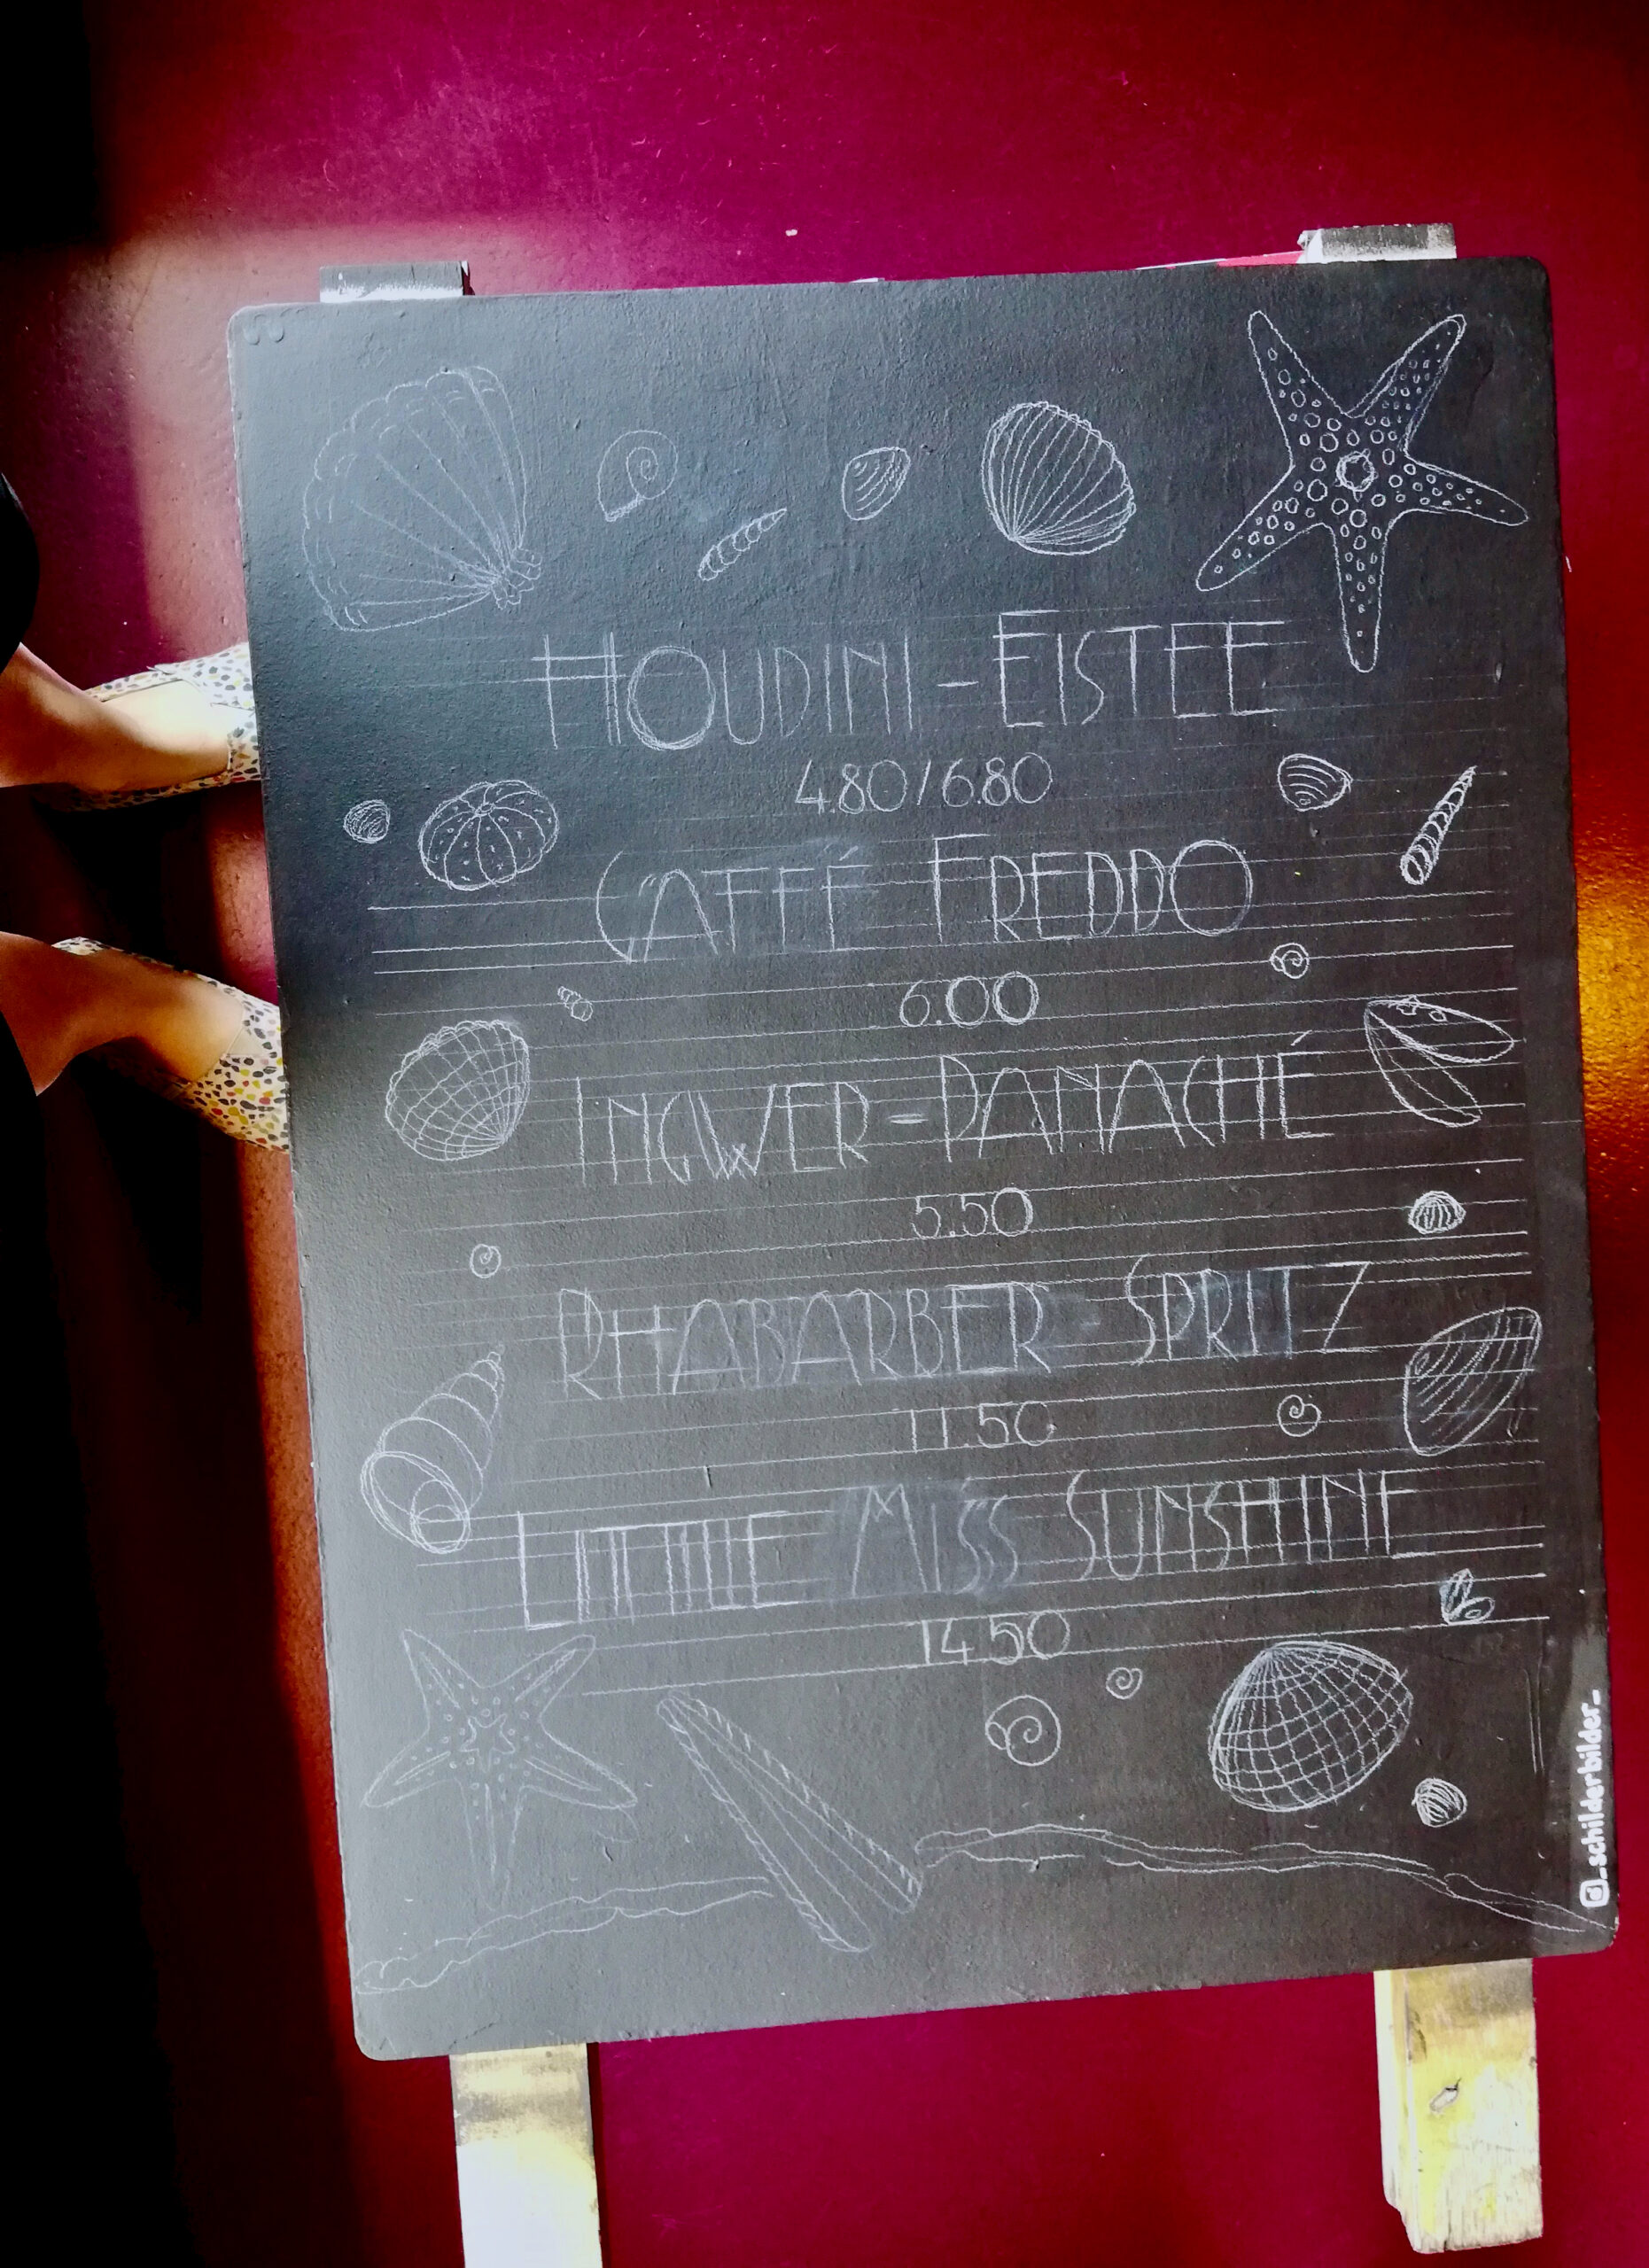 HOUDINI-EISTEE
4.80/6.80
CAFFÉ FREDDO
6.00
INGWER-PANACHÉ
5.50
RHABARBER-SPRITZ
11.50
LITTLE MISS SUNSHINE
14.50
@_schilderbilder_